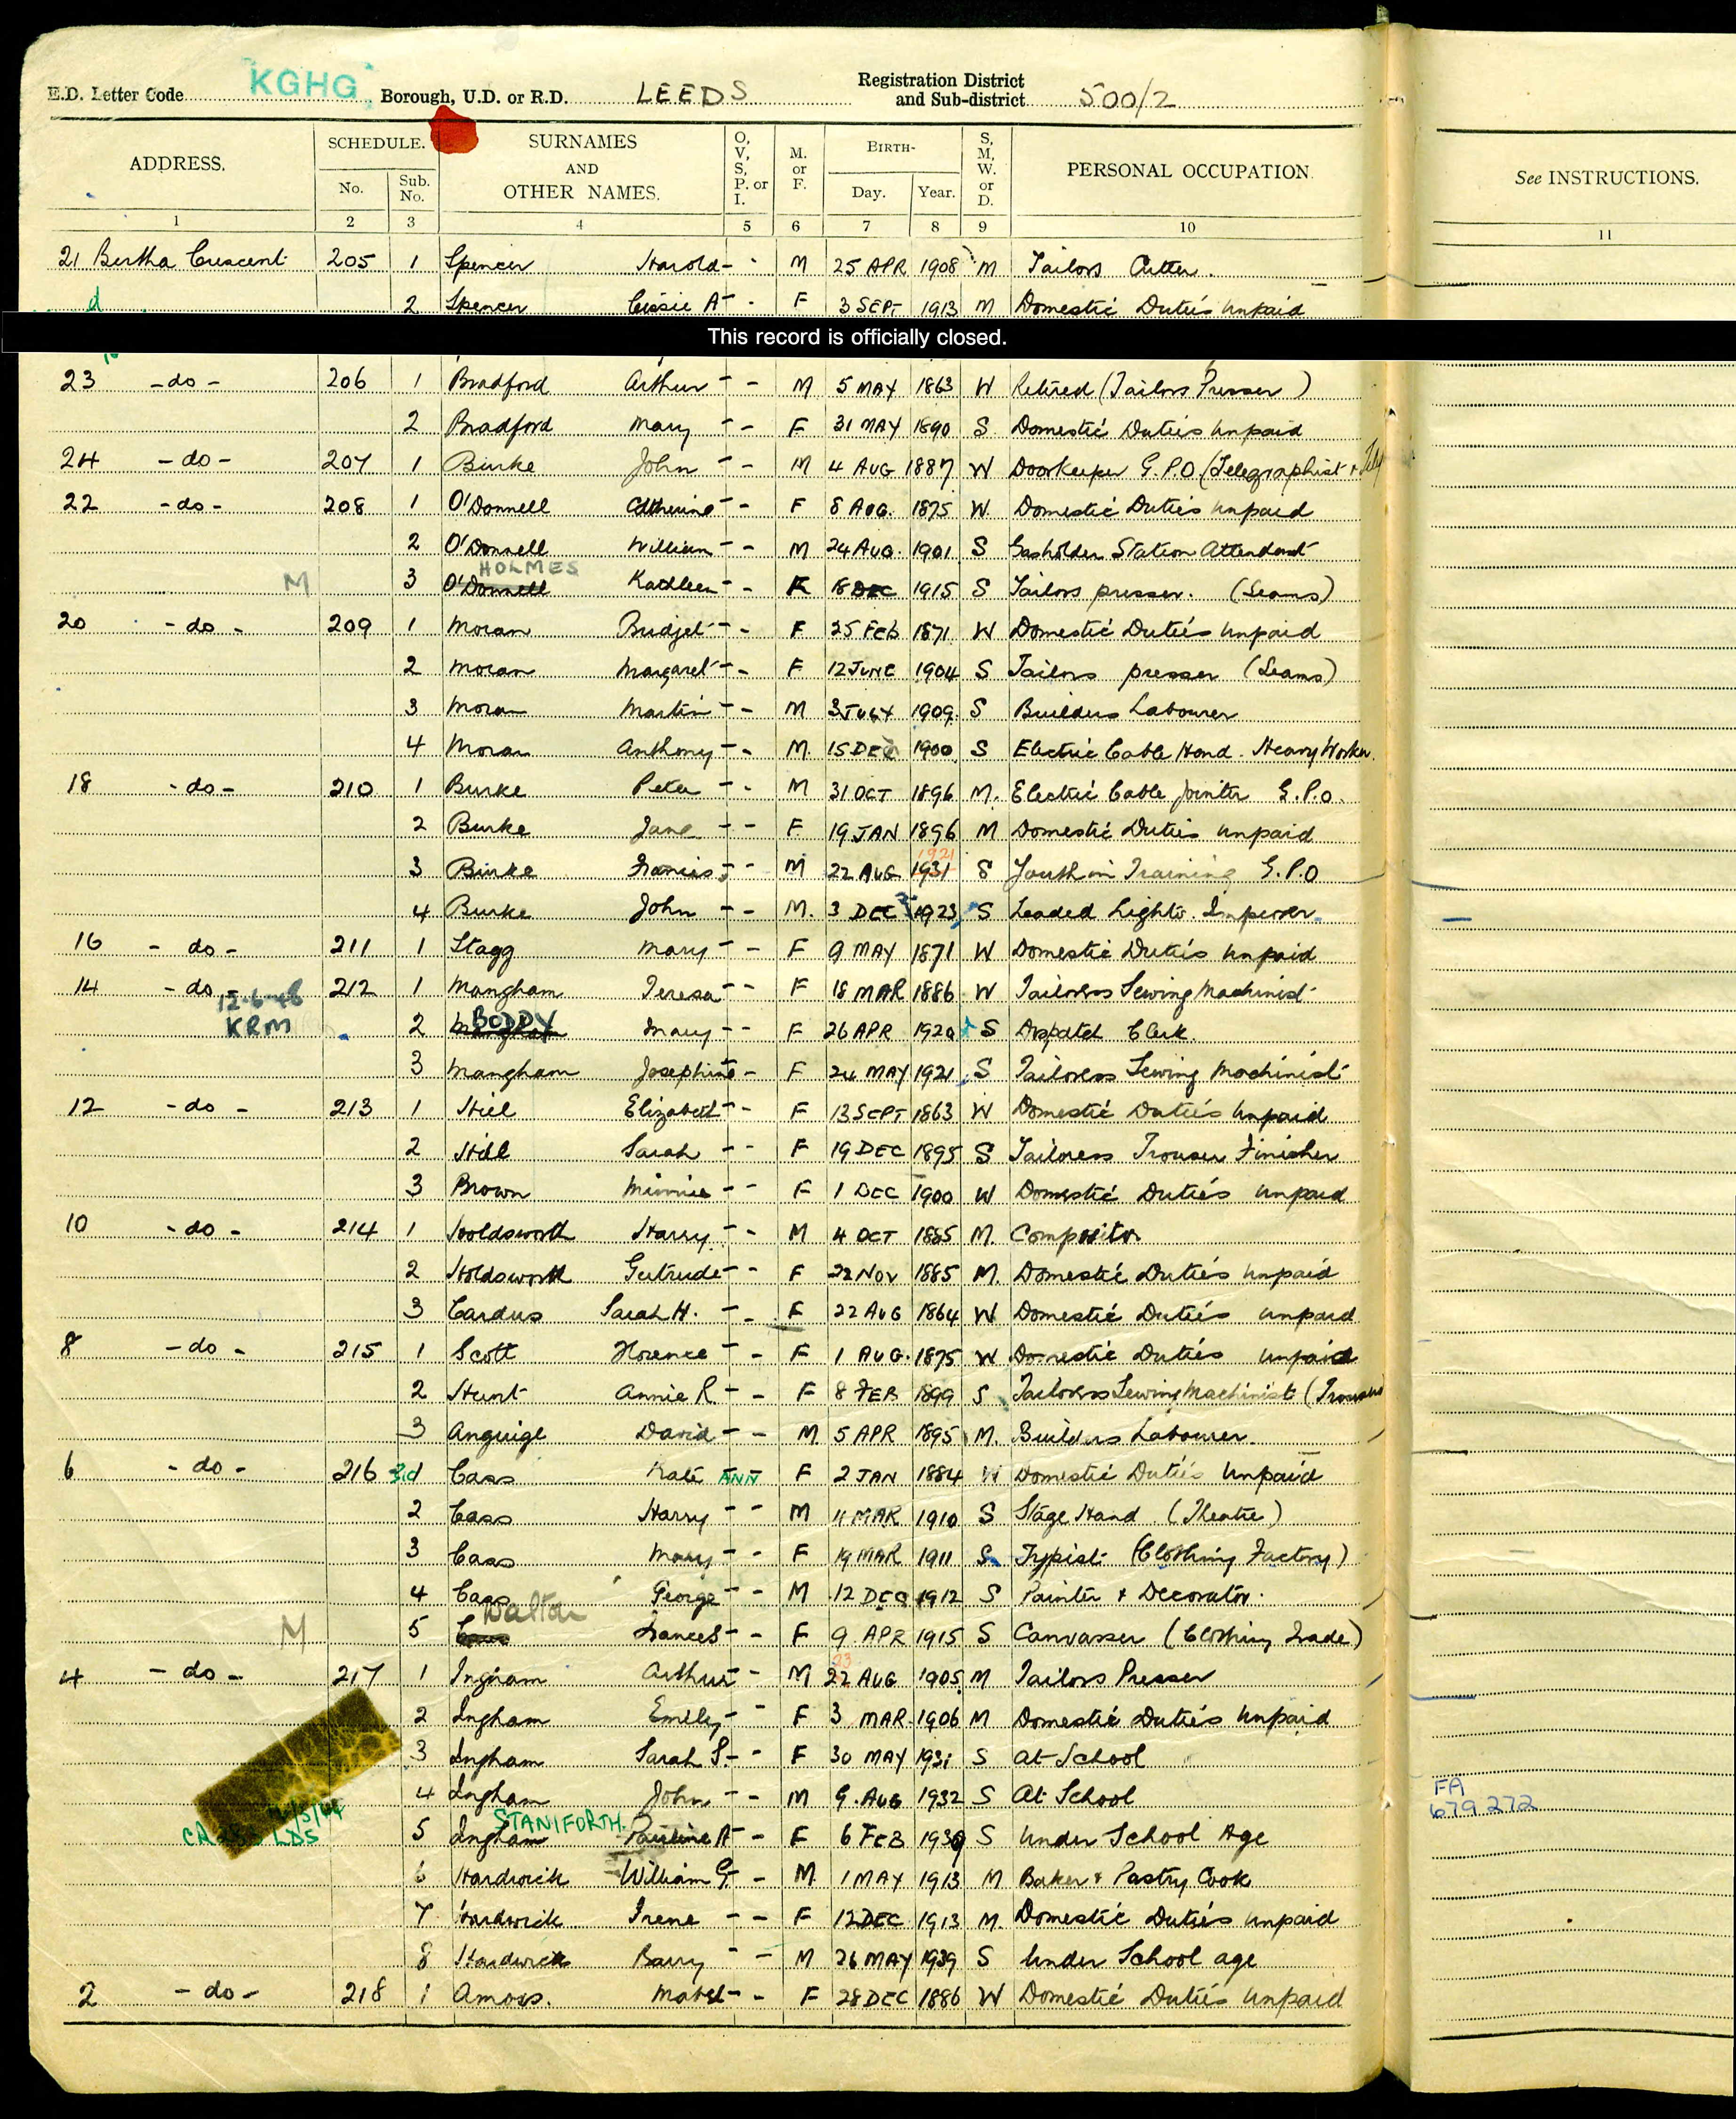 E.D. Letter Code KGHG Borough, U.D. or R.D. LEEDS Registration District and Sub-district 500/2
ADDRESS. SCHEDULE. No. Sub. No. SURNAMES AND OTHER NAMES. O, V, S, P. or I. M. or F. BIRTH- Day. Year. S, M, W. or D. PERSONAL OCCUPATION. See INSTRUCTIONS.
1 2 3 4 5 6 7 8 9 10 11
21 Bertha Crescent 205 1 Spencer Harold - - M 25 APR 1908 M Tailors Cutter.
2 Spencer Cissie A - - F 3 SEPT 1913 M Domestic Duties Unpaid
This record is officially closed.
23 -do- 206 1 Bradford Arthur - - M 5 MAY 1863 W Retired (Tailors Presser)
2 Bradford Mary - - F 31 MAY 1890 S Domestic Duties Unpaid
24 -do- 207 1 Burke John - - M 4 AUG 1887 W Doorkeeper G.P.O (Telegraphist +
22 -do- 208 1 O'Donnell Catherine - - F 8 AUG. 1875 W. Domestic Duties Unpaid
2 O'Donnell William - - M 24 AUG. 1901 S Gasholder Station Attendant
HOLMES
M 3 O'Donnell Kathleen - - F 18 DEC 1915 S Tailors presser. (Seams)
20 -do- 209 1 Moran Bridget - - F 25 FEB 1871 W Domestic Duties Unpaid
2 Moran Margaret - - F 12 JUNE 1904 S Tailors presser (Seams)
3 Moran Martin - - M 3 JULY 1909 S Builders Labourer
4 Moran Anthony - - M. 15 DEC 1900 S Electric Cable Hand. Heavy Worker.
18 -do- 210 1 Burke Peter - - M 31 OCT 1896 M. Electric Cable Jointer G.P.O.
2 Burke Jane - - F. 19 JAN 1896 M Domestic Duties Unpaid
1921
3 Burke Francis - - M 22 AUG 1931 S Youth in Training G.P.O
4 Burke John - - M. 3 DEC 1923 S Leaded Lights.
16 -do- 211 1 Stagg Mary - - F 9 MAY 1871 W Domestic Duties Unpaid
14 -do- 212 1 Mangham Teresa - - F 18 MAR 1886 W Tailoress Sewing Machinist
12-6-48 KRM
BODDY
2 Mangham Mary - - F 26 APR 1920 S Dispatch Clerk.
3 Mangham Josephine - - F 24 MAY 1921 S Tailoress Sewing Machinist
12 -do- 213 1 Hill Elizabeth - - F 13 SEPT 1863 W Domestic Duties Unpaid
2 Hill Sarah - - F 19 DEC 1895 S Tailoress Trouser Finisher
3 Brown Minnie - - F 1 DEC 1900 W Domestic Duties Unpaid
10 -do- 214 1 Holdsworth Harry - - M 4 OCT 1885 M. Compositor
2 Holdsworth Gertrude - - F 22 NOV 1885 M. Domestic Duties Unpaid
3 Cardus Sarah H. - - F 22 AUG 1864 W Domestic Duties Unpaid
8 -do- 215 1 Scott Florence - - F 1 AUG. 1875 W Domestic Duties Unpaid
2 Hunt Annie R. - - F 8 FEB 1899 S Tailoress Sewing Machinist (Trousers
3 Anguige David - - M 5 APR 1895 M. Builders Labourer.
6 -do- 216 Cass Kate ANN F 2 JAN 1884 W Domestic Duties Unpaid
2 Cass Harry - - M 11 MAR 1910 S Stage Hand (Theatre)
3 Cass Mary - - F 19 MAR 1911 S. Typist (Clothing Factory)
4 Cass George - - M 12 DEC 1912 S Painter + Decorator.
Walton
M 5 Cass Frances - - F 9 APR 1915 S Canvasser (Clothing Trade)
23
4 -do- 217 1 Ingham Arthur - - M 22 AUG 1905 M Tailors Presser
2 Ingham Emily - - F 3 MAR 1906 M Domestic Duties Unpaid
3 Ingham Sarah S. - - F 30 MAY 1931 S At School
4 Ingham John - - M 9. AUG 1932 S At School
FA 679272
STANIFORTH
5 Ingham Pauline A - - F 6 FEB 1939 S Under School Age
6 Hardwick William G. - - M. 1 MAY 1913 M Baker + Pastry Cook
7 Hardwick Irene - - F 12 DEC 1913 M. Domestic Duties Unpaid
8 Hardwick Barry - - M 26 MAY 1939 S Under School age
2 -do- 218 1 Amoss. Mabel - - F 28 DEC 1886 W Domestic Duties Unpaid